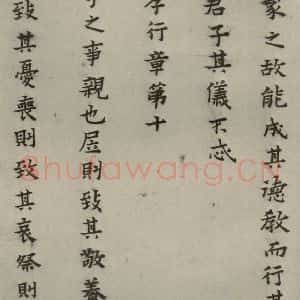 象之故能成其德教而行其
君子其儀不忒
孝行章第十
子之事親也居則致其敬養
致其憂喪則致其哀祭則
Shufawang.CN